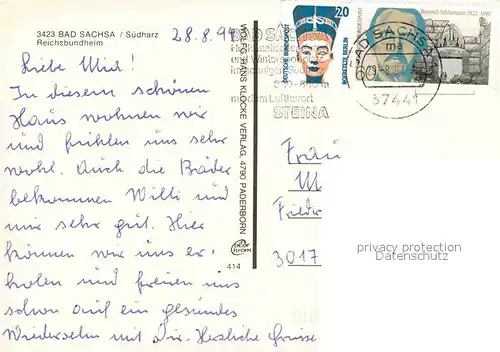 3423 BAD SACHSA / Südharz
Reichsbundheim
28.8.94
Liebe
In diesem schönen
Haus wohnen wir
und fühlen uns sehr
wohl. Auch die Bäder
bekommen Willi und
mir sehr gut. Hier
können wir uns er-
holen und freuen uns
schon auf ein gesundes
Wiedersehn mit Dir. Herzliche Grüsse
HANS KLOCKE VERLAG, 4790 PADERBORN
414
BAD SACHSA
und Winters
300-
Luftkurort
STEINA
20
DEUTSCHE BUNDESPOST
NOFRETETE BERLIN
Heinrich Schliemann 1822-1890
60
BAD SACHSA
ma
37441
Frau
M
3017
privacy protection
Datenschutz